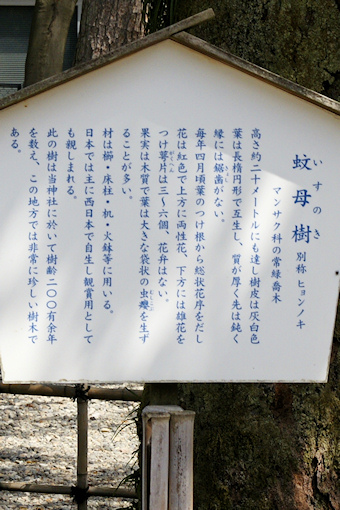 いすのき
蚊母樹 別称 ヒョンノキ
マンサク科の常緑喬木
高さ約二十メートルにも達し樹皮は灰白色
葉は長楕円形で互生し、質が厚く先は鈍く
縁には鋸歯がない。
毎年四月頃葉のつけ根から総状花序をだし
花は紅色で上方に両性花、下方には雄花を
つけ萼片は三〜六個、花弁はない。
果実は木質で葉は大きな袋状の虫癭を生ず
ることが多い。
材は櫛・床柱・机・火鉢等に用いる。
日本では主に西日本で自生し観賞用として
も親しまれる。
此の樹は当神社に於いて樹齢二〇〇有余年
を数え、この地方では非常に珍しい樹木で
ある。